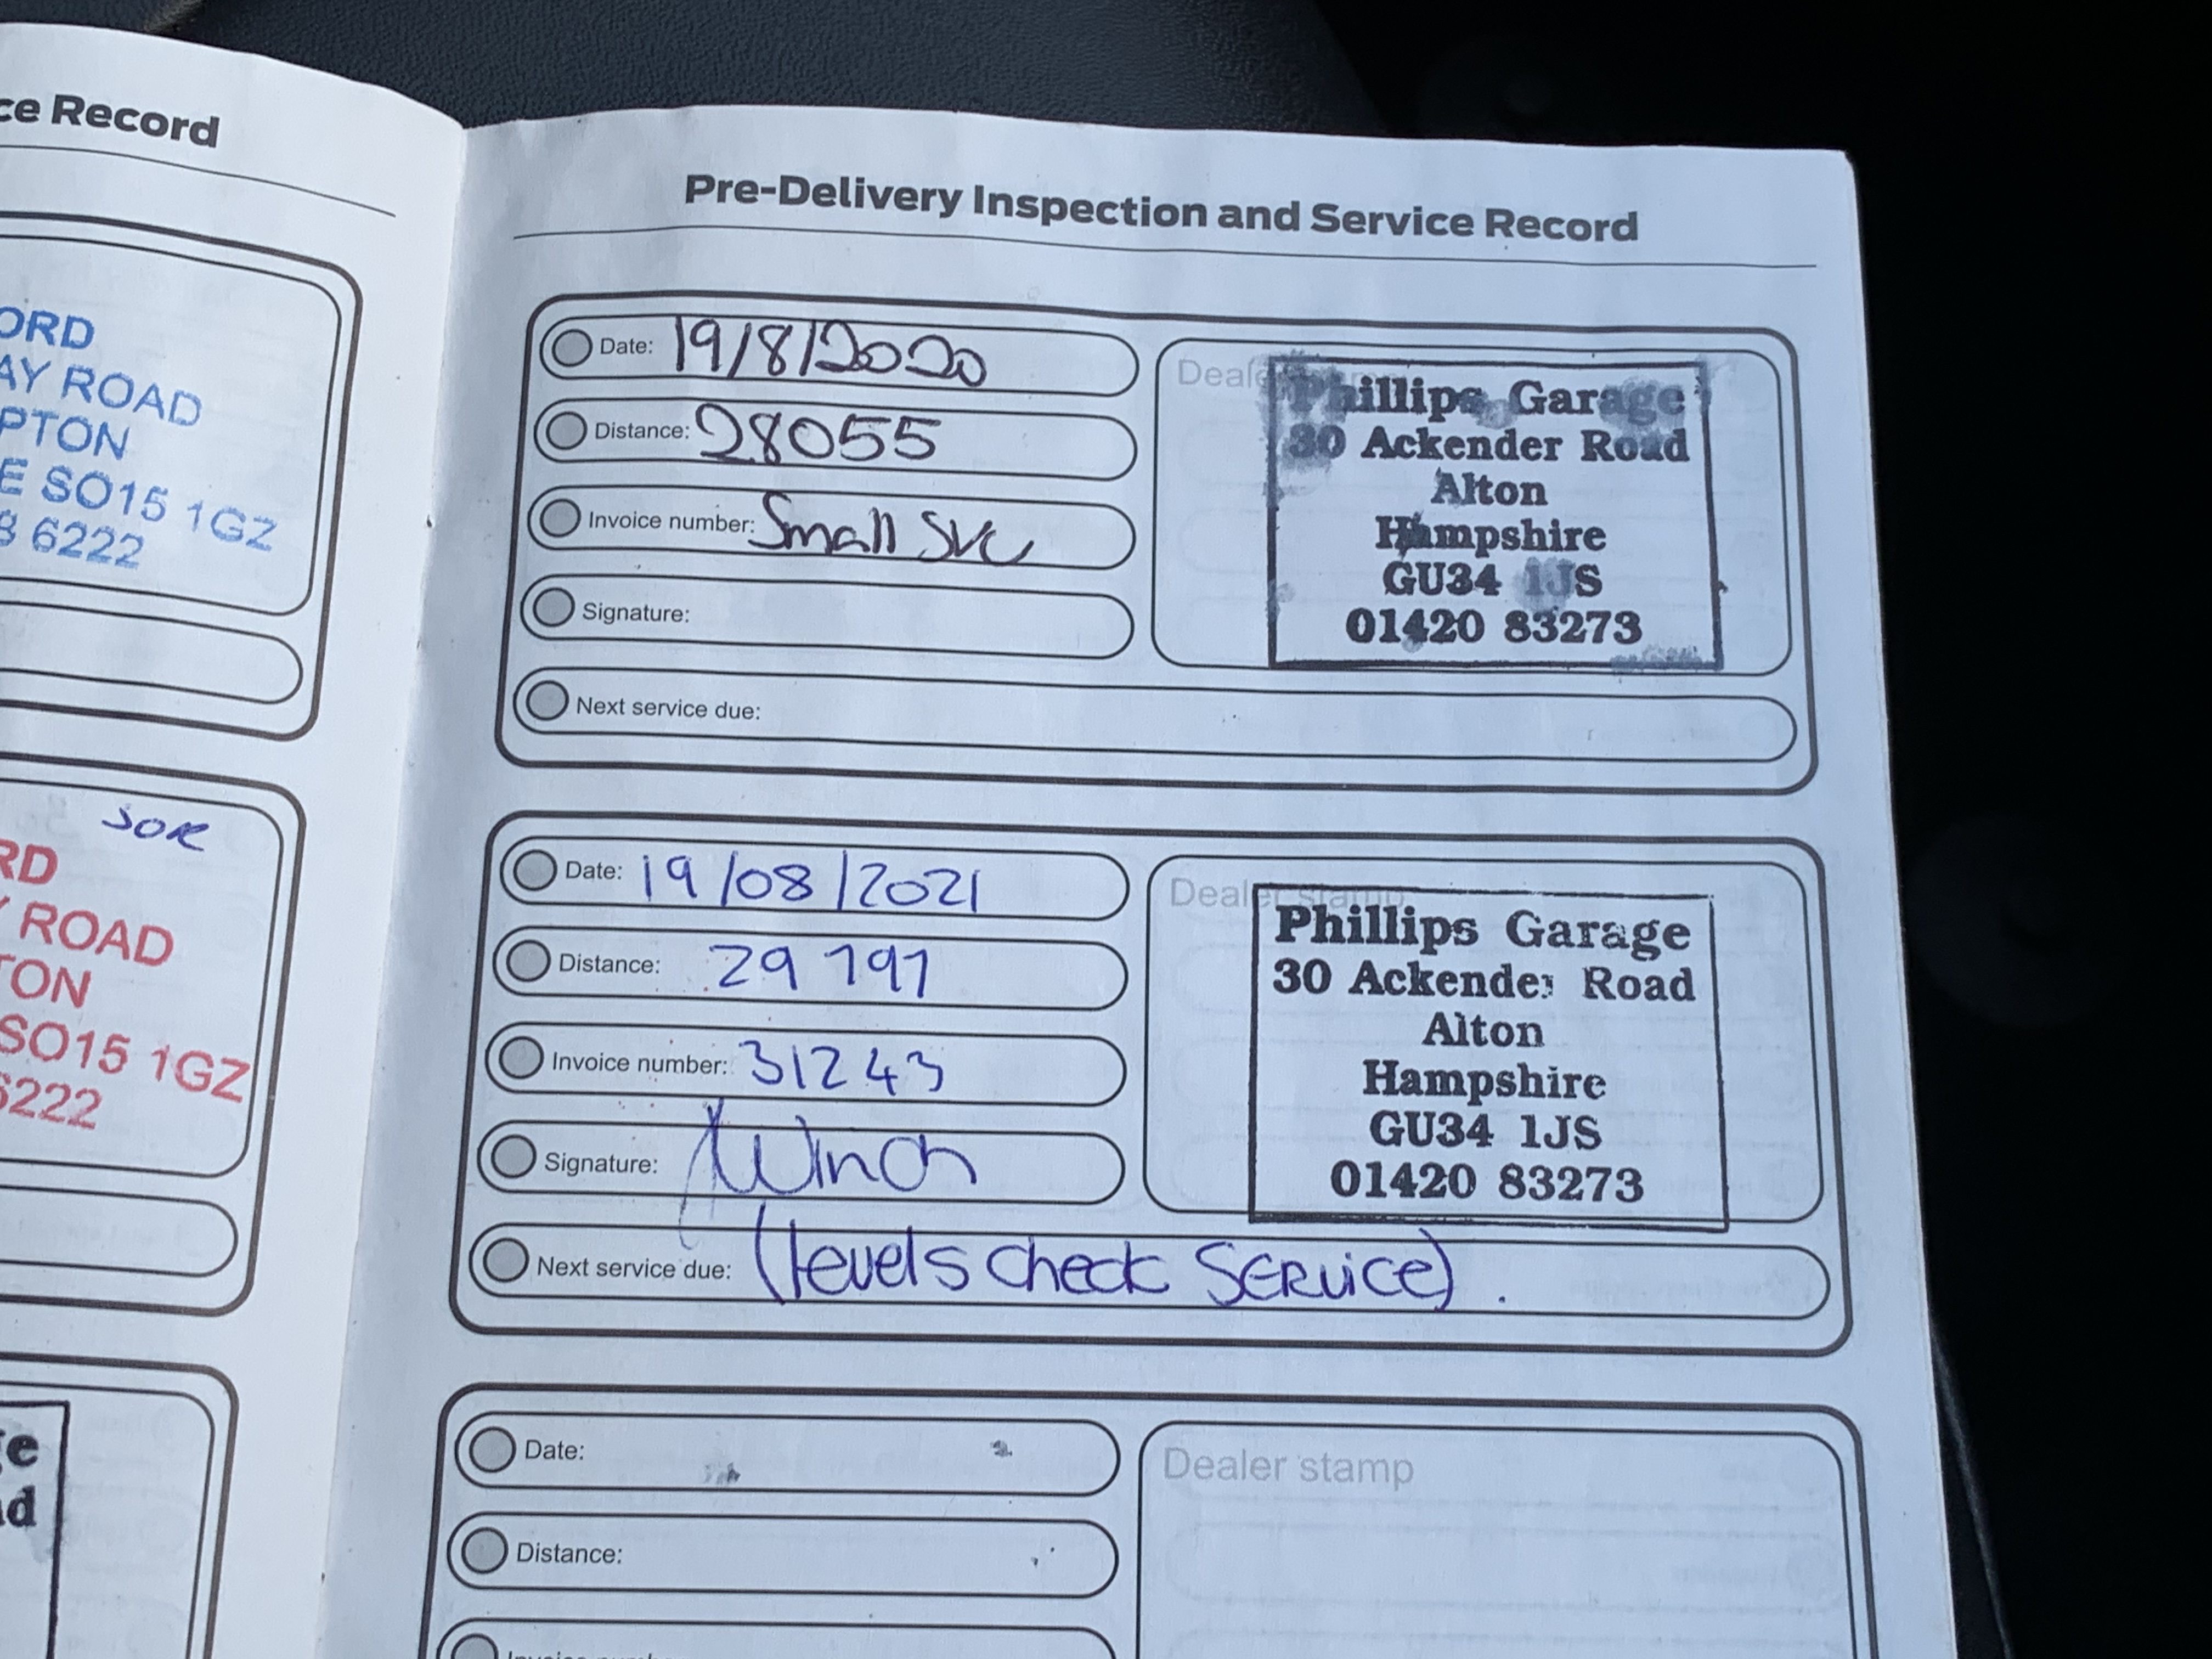 ce Record
ORD
AY ROAD
PTON
E SO15 1GZ
3 6222
SOR
RD
Y ROAD
TON
SO15 1GZ
6222
ge
ad
Pre-Delivery Inspection and Service Record
Date: 19/8/2020
Distance: 28055
Invoice number: Small SVC
Signature:
Next service due:
Dealer stamp
Phillips Garage
30 Ackender Road
Alton
Hampshire
GU34 1JS
01420 83273
Date: 19/08/2021
Distance: 29797
Invoice number: 31243
Signature: Winch
Next service due: (levels check SERVICE).
Dealer stamp
Phillips Garage
30 Ackender Road
Alton
Hampshire
GU34 1JS
01420 83273
Date:
Distance:
Invoice number
Dealer stamp